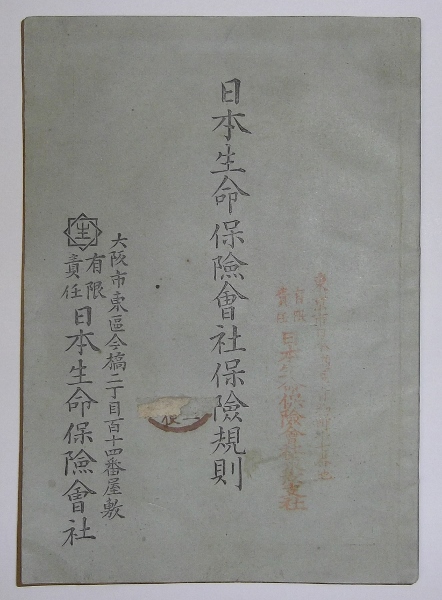 有限
責任
日本生命保險會社
日本生命保險會社保險規則
大阪市東區今橋二丁目百十四番屋敷
生
有限
責任
日本生命保險會社